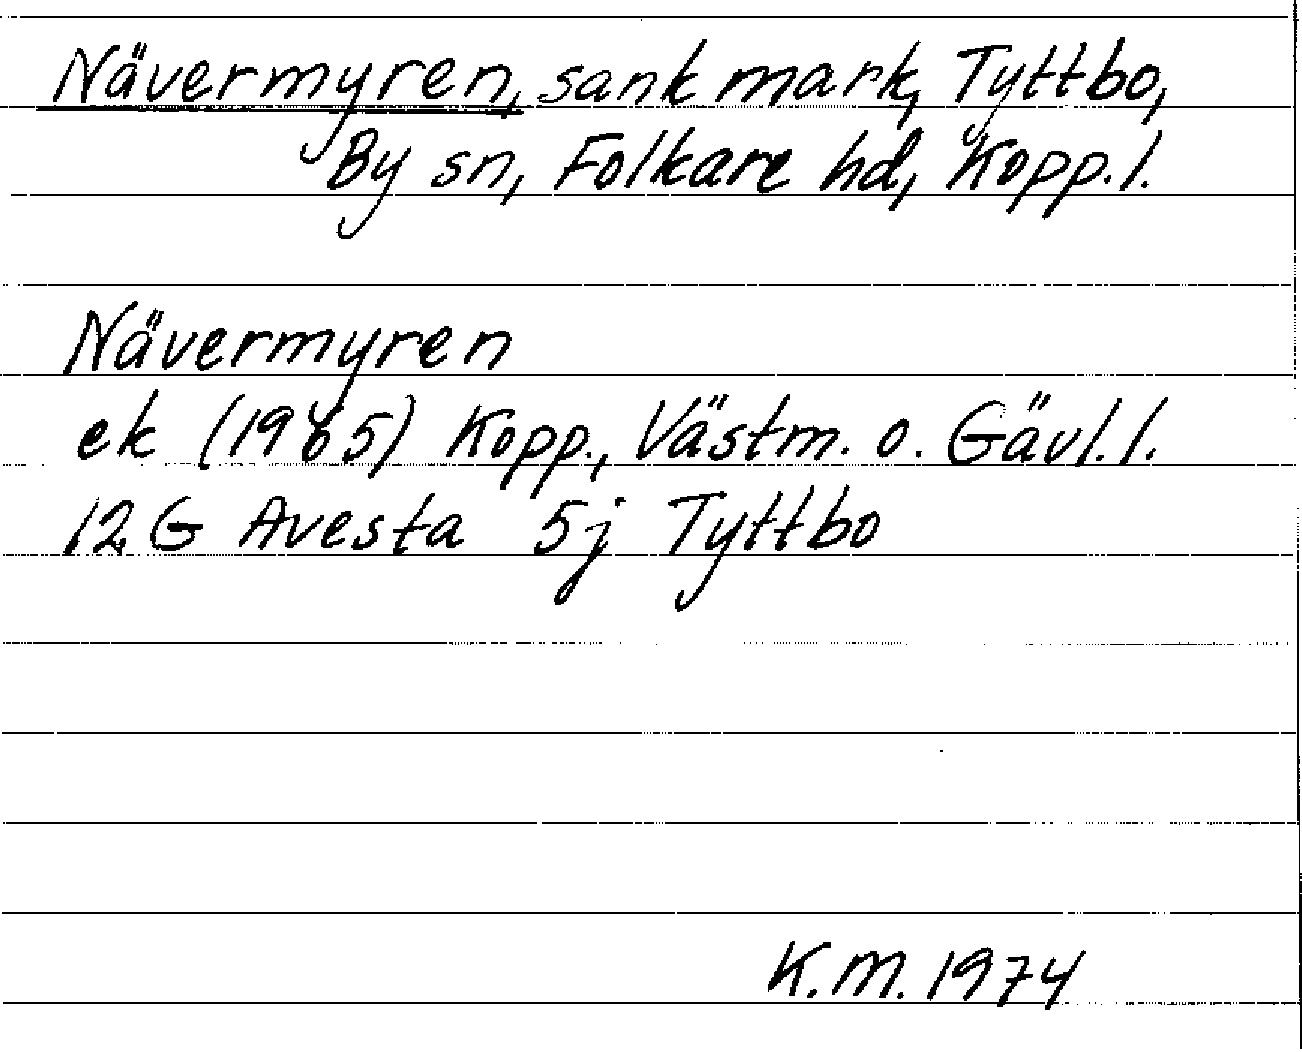 Nävermyren, sank mark, Tyttbo,
By sn, Folkare hd, Kopp. l.
Nävermyren
ek (1965) Kopp., Västm. o. Gävl. l.
12 G Avesta 5j Tyttbo
K.M. 1974